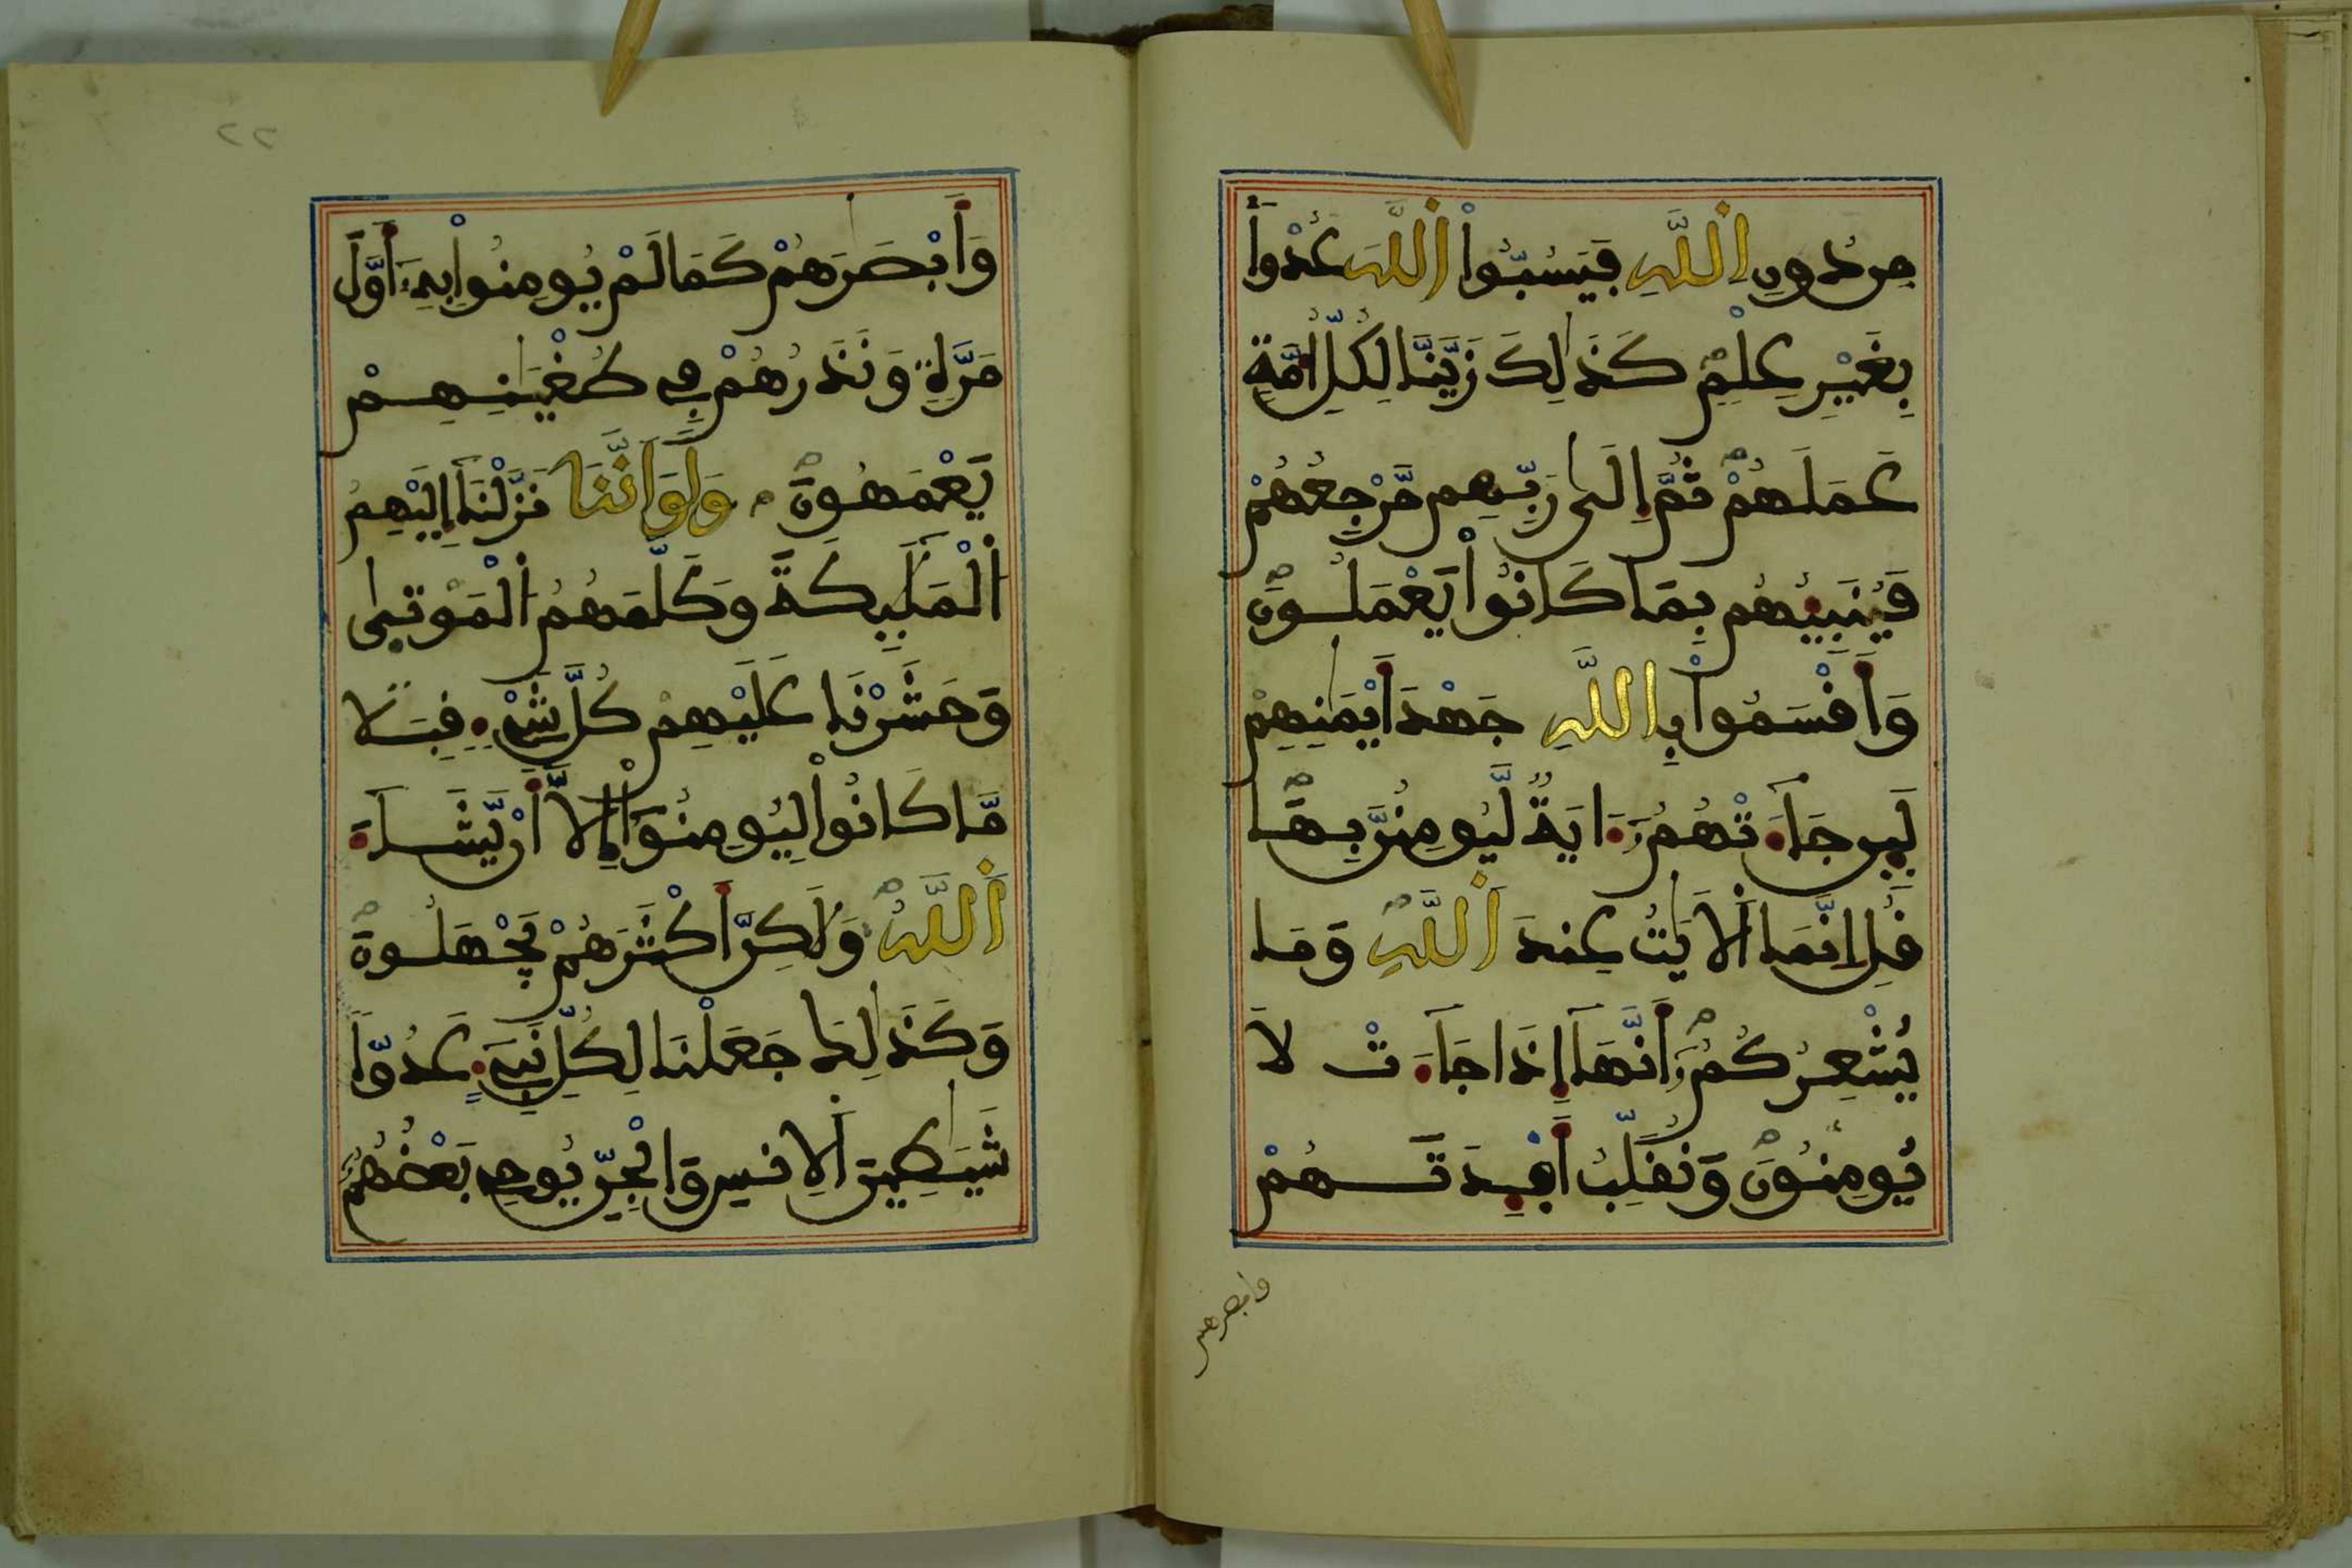 مِن دُونِ اِ۬للَّهِ فَيَسُبُّواْ اُ۬للَّهَ عَدْواَۢ
بِغَيْرِ عِلْمٖ كَذَٰلِكَ زَيَّنَّا لِكُلِّ أُمَّةٍ
عَمَلَهُمْ ثُمَّ إِلَىٰ رَبِّهِم مَّرْجِعُهُمْ
فَيُنَبِّئُهُم بِمَا كَانُواْ يَعْمَلُونَ
وَأَقْسَمُواْ بِاللَّهِ جَهْدَ أَيْمَٰنِهِمْ
لَئِن جَآءَتْهُمُۥٓ ءَايَةٞ لَّيُومِنُنَّ بِهَا
قُلِ اِنَّمَا اَ۬لَايَٰتُ عِندَ اَ۬للَّهِ وَمَا
يُشْعِرُكُمُۥٓ أَنَّهَآ إِذَا جَآءَتْ لَا
يُومِنُونَ وَنُقَلِّبُ أَفْـِٔدَتَهُمْ
وابصرهم
٢٢
وَأَبْصَٰرَهُمْ كَمَا لَمْ يُومِنُواْ بِهِۦٓ أَوَّلَ
مَرَّةٖ وَنَذَرُهُمْ فِي طُغْيَٰنِهِمْ
يَعْمَهُونَ وَلَوَ اَنَّنَا نَزَّلْنَآ إِلَيْهِمُ
اُ۬لْمَلَٰٓئِكَةَ وَكَلَّمَهُمُ اُ۬لْمَوْتَىٰ
وَحَشَرْنَا عَلَيْهِمْ كُلَّ شَيْءٖ قِبَلاٗ
مَّا كَانُواْ لِيُومِنُوٓاْ إِلَّآ أَنْ يَّشَآءَ
اَ۬للَّهُ وَلَٰكِنَّ أَكْثَرَهُمْ يَجْهَلُونَ
وَكَذَٰلِكَ جَعَلْنَا لِكُلِّ نَبِيٓءٍ عَدُوّاٗ
شَيَٰطِينَ اَ۬لِانسِ وَالْجِنِّ يُوحِي بَعْضُهُمُۥٓ